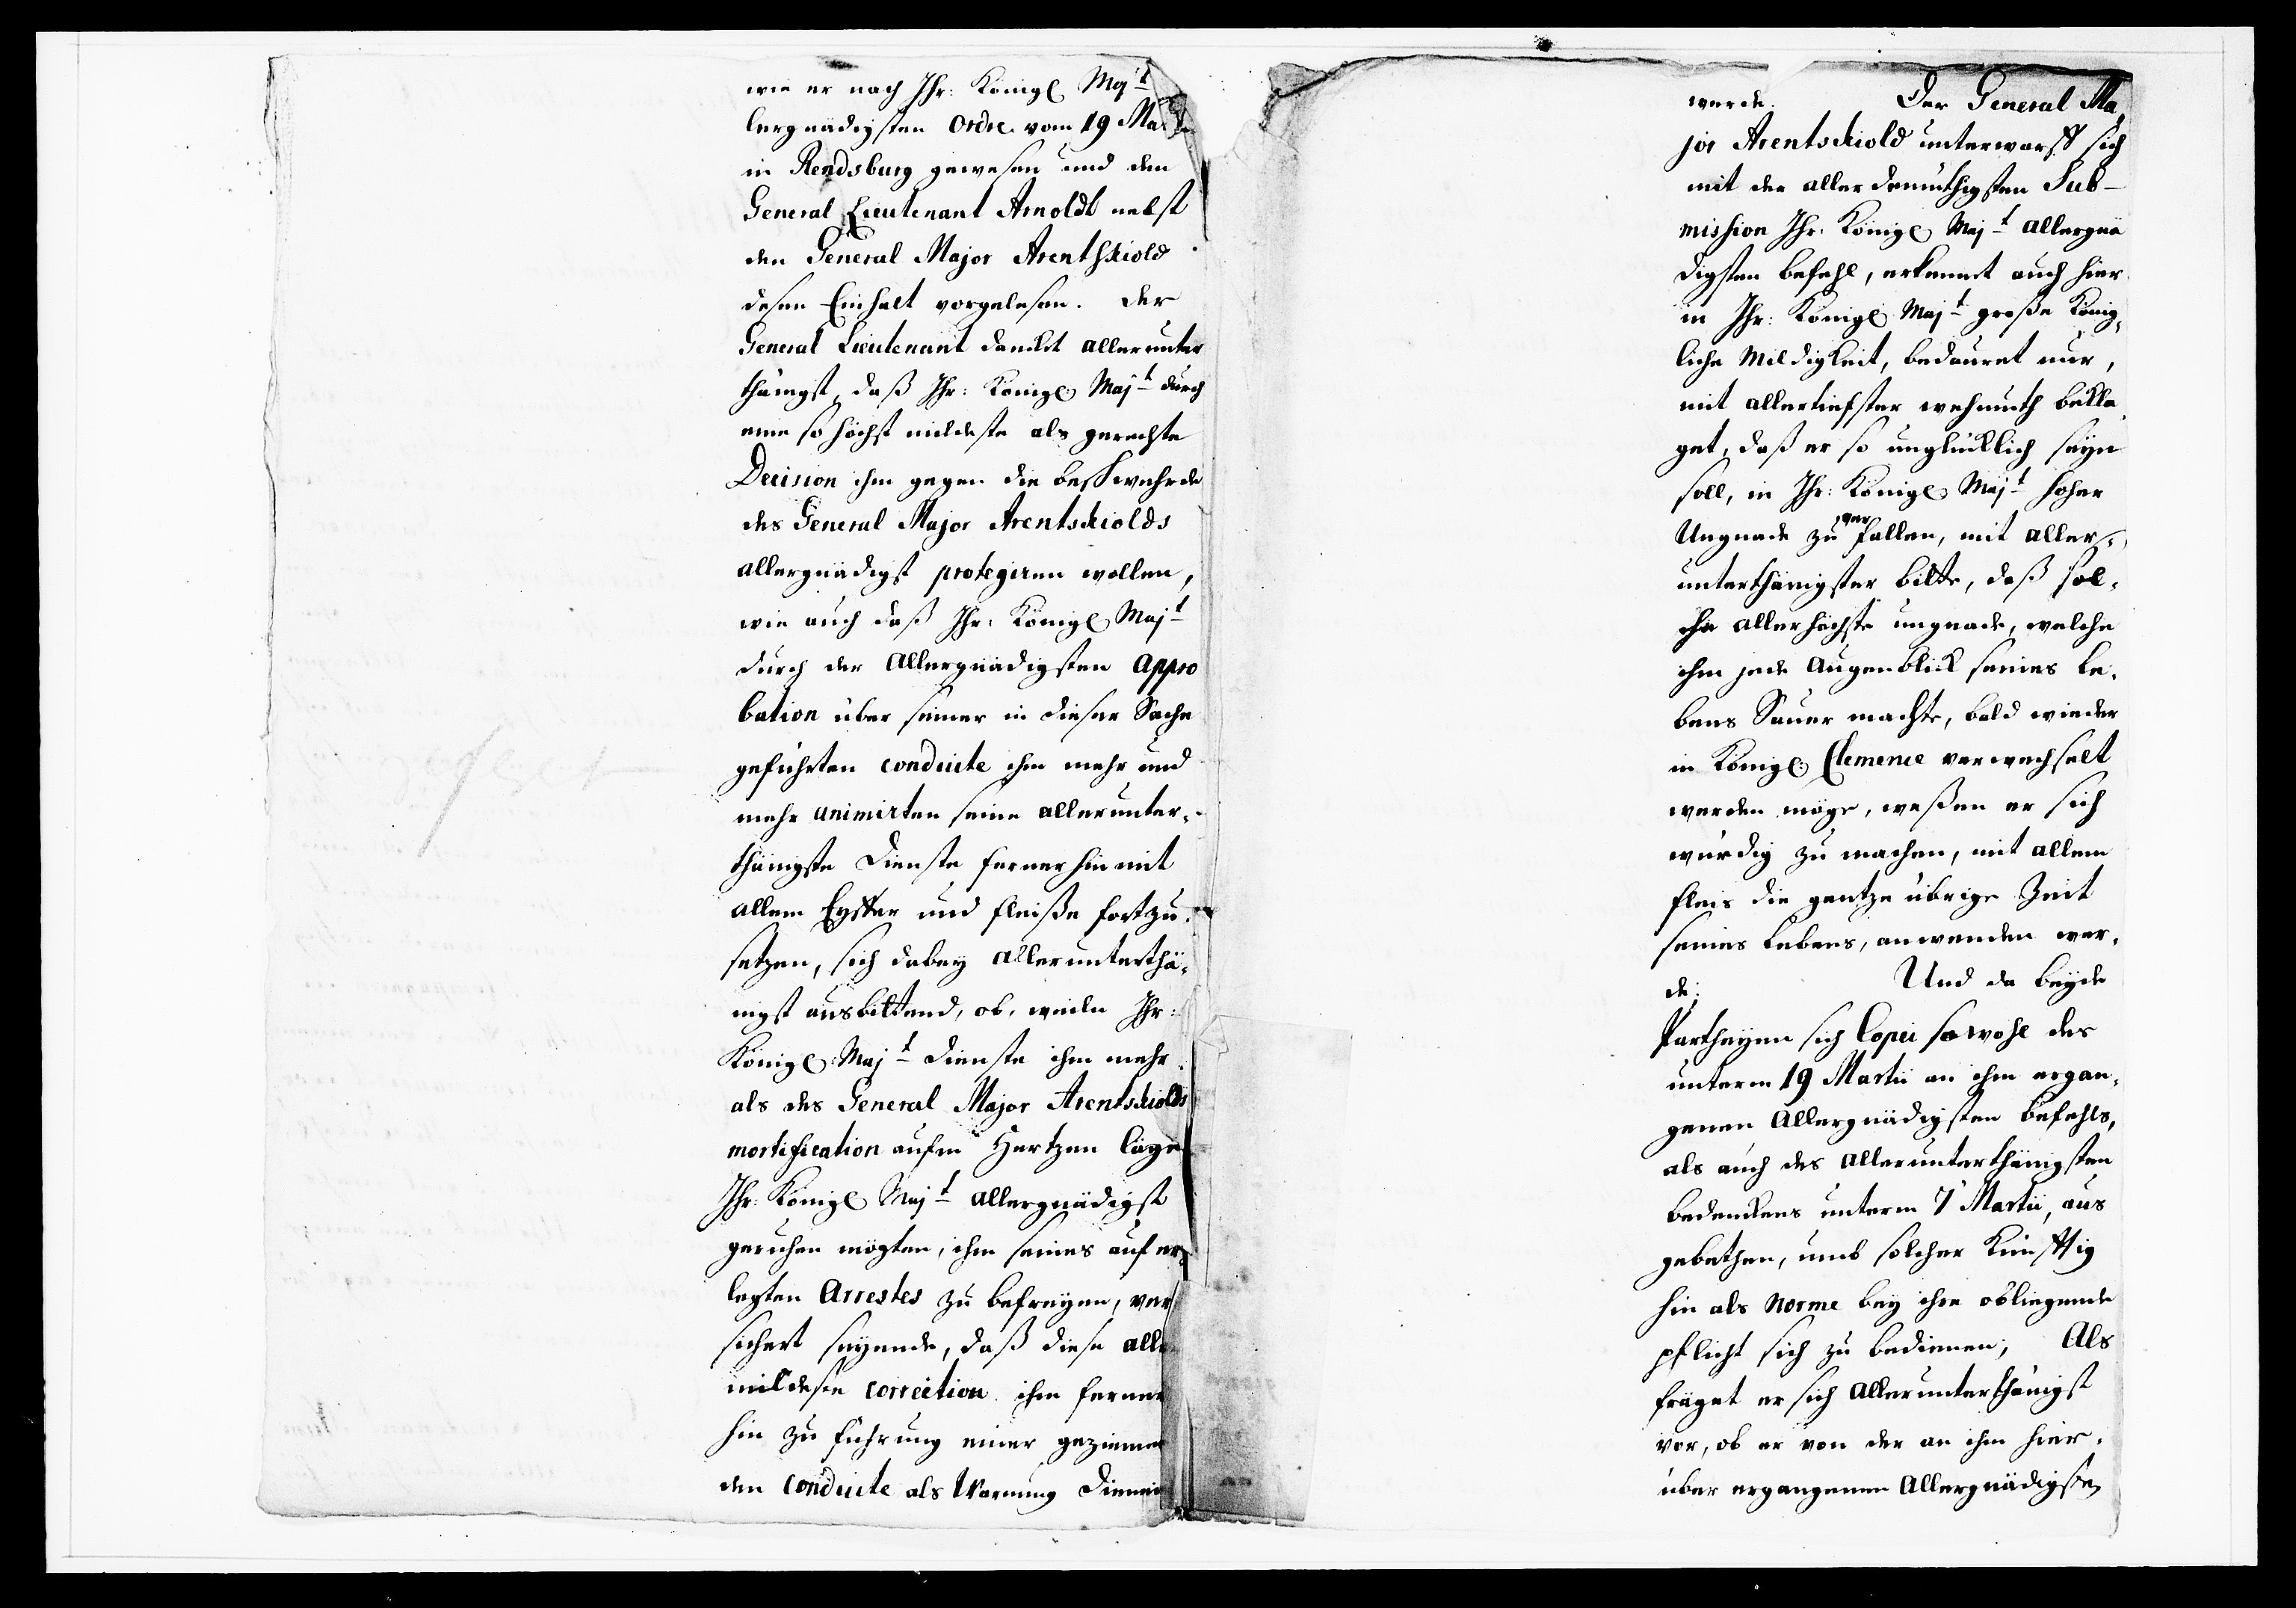 wie er nach Ihr: Königl Majt
lergnädigsten Ordre vom 19 Martii
in Rendsburg gewesen und den
General Lieutenant Arnoldt nebst
den General Major Arentskiold
desen Einhalt vorgelesen. Der
General Lieutenant danckt allerunter
thänigst, daß Ihr: Königl: Majt durch
eine so höchst mildeste als gerechte
Decision ihn gegen die beschwehrde
des General Major Arentskiolds
allergnädigst protegiren wollen,
wie auch daß Ihr: Königl Majt
durch der Allergnädigsten Appro
bation über seiner in dieser Sache
geführten conduite ihn mehr und
mehr animirten seine allerunter-
thänigste Dienste fernerhin mit
allem Eyffer und fleiße fortzu-
setzen, sich dabey allerunterthä-
nigst ausbittend, ob, weiln Ihr:
Königl: Majt Dienste ihm mehr
als des General Major Arentskiolds
mortification aufm Hertzen läge
Ihr: Königl Majt allergnädigst
geruhen mögten, ihn seines aufer-
legten Arrestes zu befreyen, ver
sichert seyende, daß diese alle
mildeste correction ihm ferner
hin zu führung einer geziemen
den conduite als Warnung dienen
werde. Der General Ma-
jor Arentskiold unterwarff sich
mit der allerdemüthigsten Sub-
mission Ihr: Königl Majt allergnä
digsten befehl, erkennet auch hier
in Ihr: Königl Majt große König-
liche Mildigkeit, bedauret nur,
mit allertiefster wehmuth bekla-
get, daß er so unglücklich seyn
soll, in Ihr: Königl Majt hoher
Ungnade zu verfallen, mit aller-
unterthänigster bitte, daß sol-
che allerhöchste ungnade, welche
ihm jede Augenblick seines Le-
bens Sauer machte, bald wieder
in Königl: Clemence verwechselt
werden möge, weßen er sich
würdig zu machen, mit allem
fleis die gantze übrige Zeit
seines Lebens, anwenden wer-
de; Und da beyde
Partheyen sich Copei sowohl des
unterm 19 Martii an ihm ergan-
genen Allergnädigsten befehls,
als auch des allerunterthänigsten
bedenckens unterm 7 Martii, aus
gebethen, umb solcher Künfftig
hin als Norme bey ihre obliegende
pflicht sich zu bedienen; Als
fräget er sich allerunterthänigst
vor, ob er von der an ihm hier-
über ergangenen Allergnädigsten